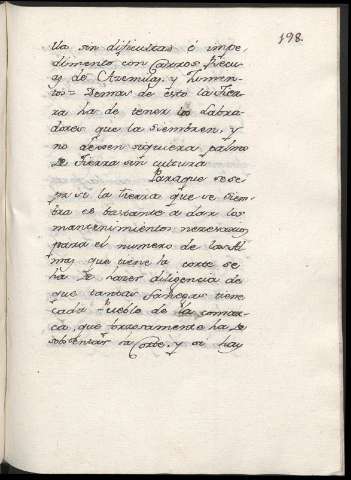 198.
lla sin dificultas ó impe
dimento con Carros, Recu
as de Azemilas, y Jumen
tos= Demas de ésto la Tier
ra ha de tener los Labra
dores que la siembren, y
no dexen siquiera palmo
de Tierra sin cultura
Paraque se se
pa si la tierra que se siem
bra es bastante a dar los
mantenimientos necesarios
para el numero de las Al
mas que tiene la corte se
ha de hazer diligencia de
que tantas fanegas tiene
cada Pueblo de la comar
ca, que precisamente ha de
sustentar la Corte, y si hay